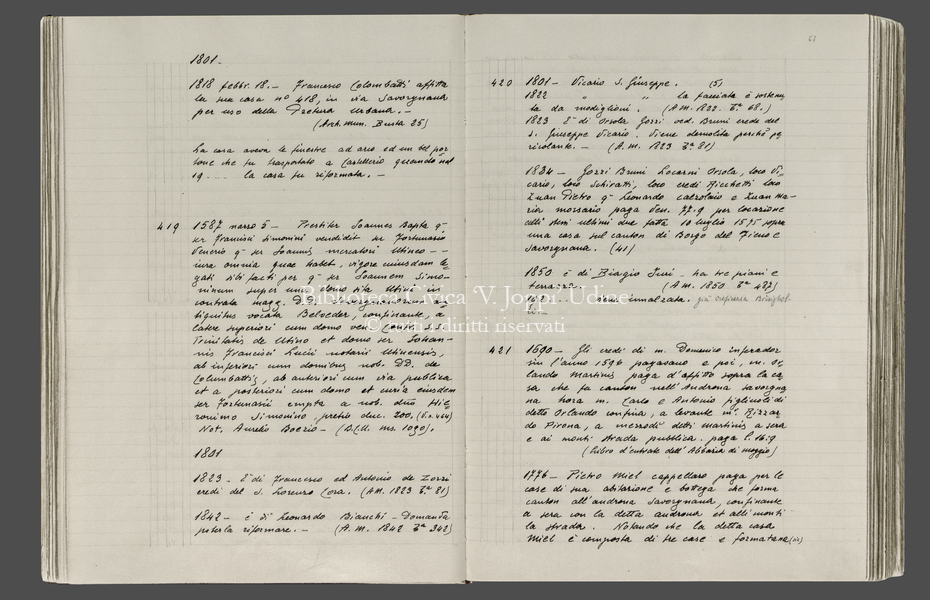 1801 -
1818 febbr. 18. - Francesco Colombatti affitta
la sua casa n° 418, in via Savorgnana
per uso della Pretura Urbana. -
(Arch. Mun. Busta 25)
La casa aveva le finestre ad arco ed un bel por
tone che fu trasportato a Castellerio quando nel
19.... la casa fu riformata. -
419 1587 marzo 5 - Presbiter Joannes Bapta q.
ser Francisci Simonini vendidit ser Fortunario
Venerio q. ser Joannis mercatori Utineo - -
iura omnia quae habet, vigore cuiusdam le
gati sibi facti per q. ser Joannem Simo-
ninum super una domo sita Utini in
contrata magg. D.D. Savorgnanorum an
tiquitus vocata Belveder, confinante, a
latere superiori cum domo ven.
Trinitatis de Utino et domo ser Johan-
nis Francisci Lucii notarii Utinensis,
ab inferiori cum domibus nob. DD. de
Columbattis, ab anteriori cum via publica
et a posteriori cum domo et curia eiusdem
ser Fortunarii empta a nob. dno Hie
ronimo Simonino, pretio duc. 200. (V. n. 464)
Not. Aurelio Boezio - (B.C.U. ms. 1090).
1801
1823 - È di Francesco ed Antonio de Zorzi
eredi del S. Lorenzo Cora. (A.M. 1823 Ba 81)
1842 - è di Leonardo Bianchi - Domanda
poterla riformare. - (A.M. 1842 Ba 342)
61
420 1801 - Vicario S. Giuseppe. (5)
1822 " " la facciata è sostenu
ta da modiglioni. (A.M. 1822. Ba 68.)
1823 È di Orsola Gozzi ved. Bruni erede del
S. Giuseppe Vicario. Viene demolita perchè pe
ricolante. - (A.M. 1823 Ba 81)
1834 - Gozzi Bruni Locarni Orsola, loco Vi-
cario, loco Schiratti, loco eredi Ricchetti loco
Zuan Pietro q. Leonardo calzolaio e Zuan Ma-
ria marsario paga Ven. 77.9 per locazione
alli suoi ultimi due fatta 19 luglio 1575 sopra
una casa sul canton di Borgo del Fieno e
Savorgnana. (41)
1850 è di Biagio Juri - ha tre piani e
terrazza. (A.M. 1850 Ba 487)
innalzata.
421 1590 - Gli eredi di m. Domenico inferador
sin l'anno 1596 pagavano e poi, m. Or
lando Martinis paga d'affitto sopra la ca
sa che fa canton nell'Androna Savorgna
na hora m. Carlo e Antonio figliuoli di
detto Orlando confina, a levante mr. Rizzar
do Pirona, a mezzodì detti Martinis a sera
e ai monti strada pubblica. paga l. 16.9
(Libro d'entrate dell'Abbazia di Moggio)
1776 - Pietro Miel cappellaro paga per le
case di sua abitazione e bottega che forma
canton all'androna Savorgnana, confinante
a sera con la detta androna et alli monti
la strada. Notando che la detta casa
Miel è composta di tre case e formatana (sic)
Biblioteca Civica 'V. Joppi' Udine
© tutti i diritti riservati